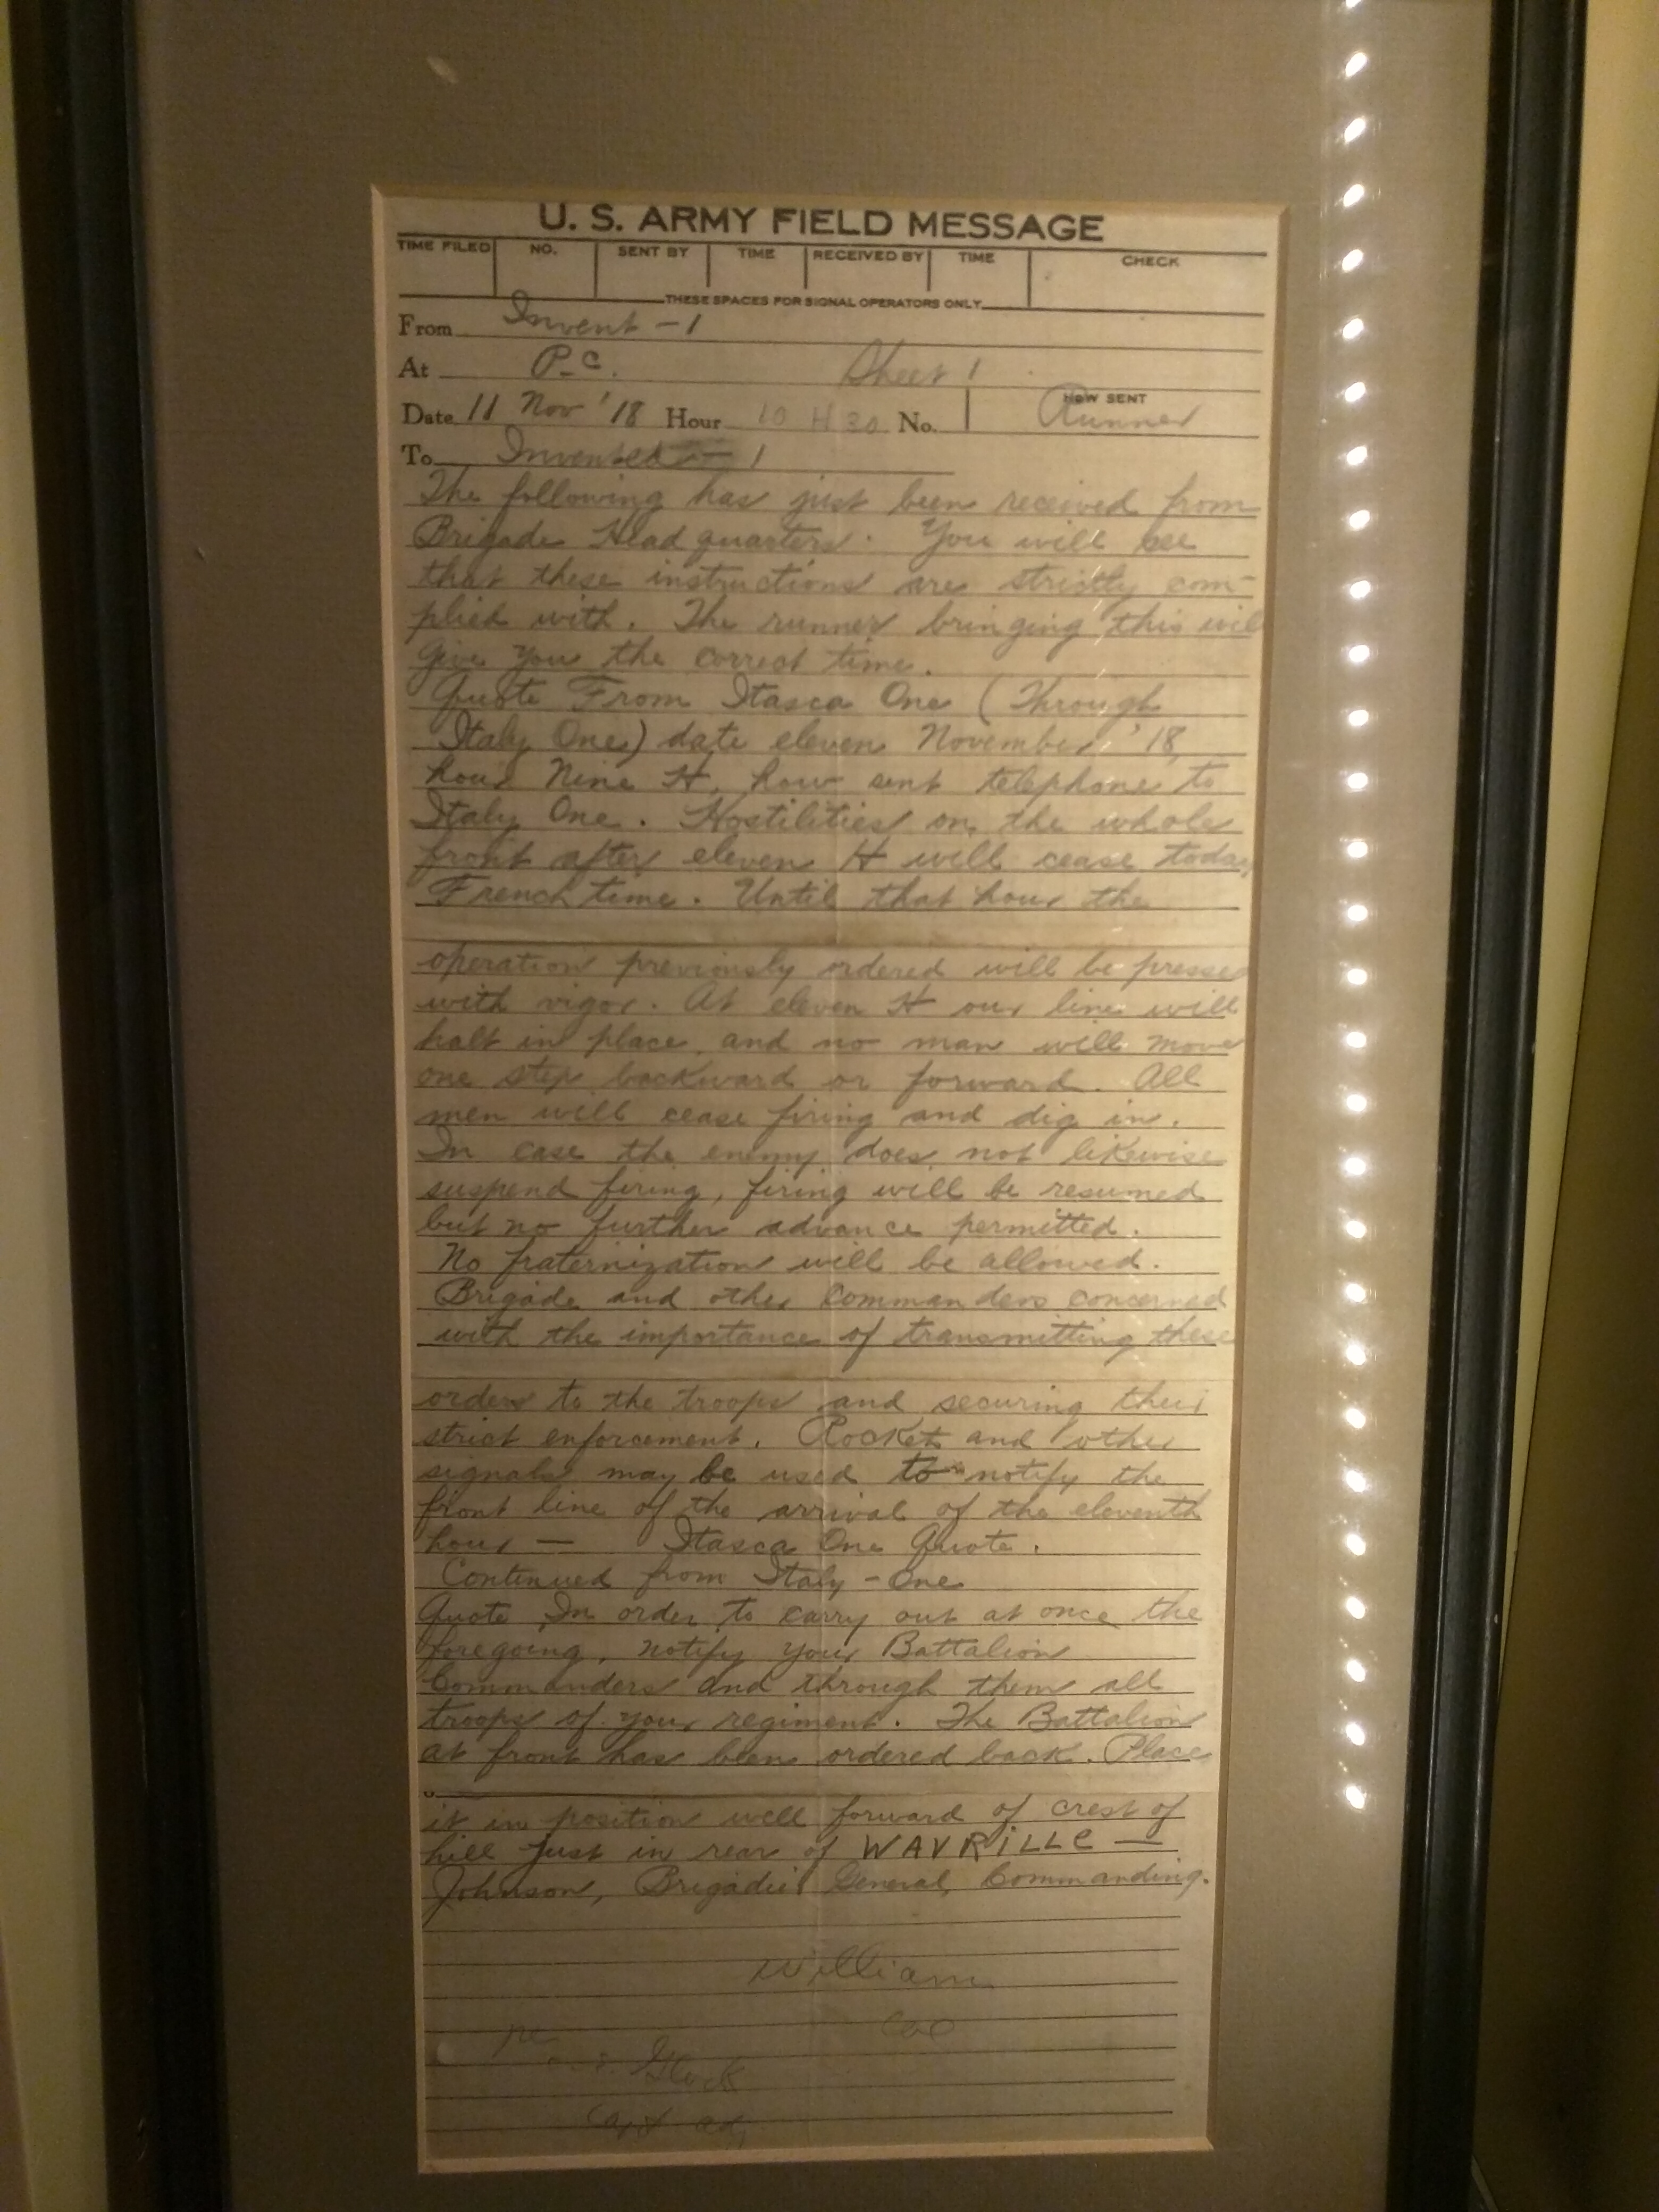 U. S. ARMY FIELD MESSAGE
TIME FILED NO. SENT BY TIME RECEIVED BY TIME CHECK
THESE SPACES FOR SIGNAL OPERATORS ONLY
From Invent - 1
At P.C. Sheet 1
Date 11 Nov '18 Hour 10 H 30 No. HOW SENT Runner
To Invented - 1
The following has just been received from
Brigade Headquarters. You will see
that these instructions are strictly com-
plied with. The runner bringing this will
give you the correct time.
Quote From Itasca One (Through
Italy One) date eleven November '18,
hour Nine H, how sent telephone to
Italy One. Hostilities on the whole
front after eleven H will cease today
French time. Until that hour the
operation previously ordered will be pressed
with vigor. At eleven H our line will
halt in place, and no man will move
one step backward or forward. All
men will cease firing and dig in.
In case the enemy does not likewise
suspend firing, firing will be resumed
but no further advance permitted.
No fraternization will be allowed.
Brigade and other Commanders concerned
with the importance of transmitting these
orders to the troops and securing their
strict enforcement. Rocket and other
signals may be used to notify the
front line of the arrival of the eleventh
hour — Itasca One Quote.
Continued from Italy - One
Quote In order to carry out at once the
foregoing, notify your Battalion
Commanders and through them all
troops of your regiment. The Battalion
at front has been ordered back. Place
it in position well forward of crest of
hill just in rear of WAVRiLLe —
Johnson, Brigadier General, Commanding.
William
Col
Glock
Capt adj